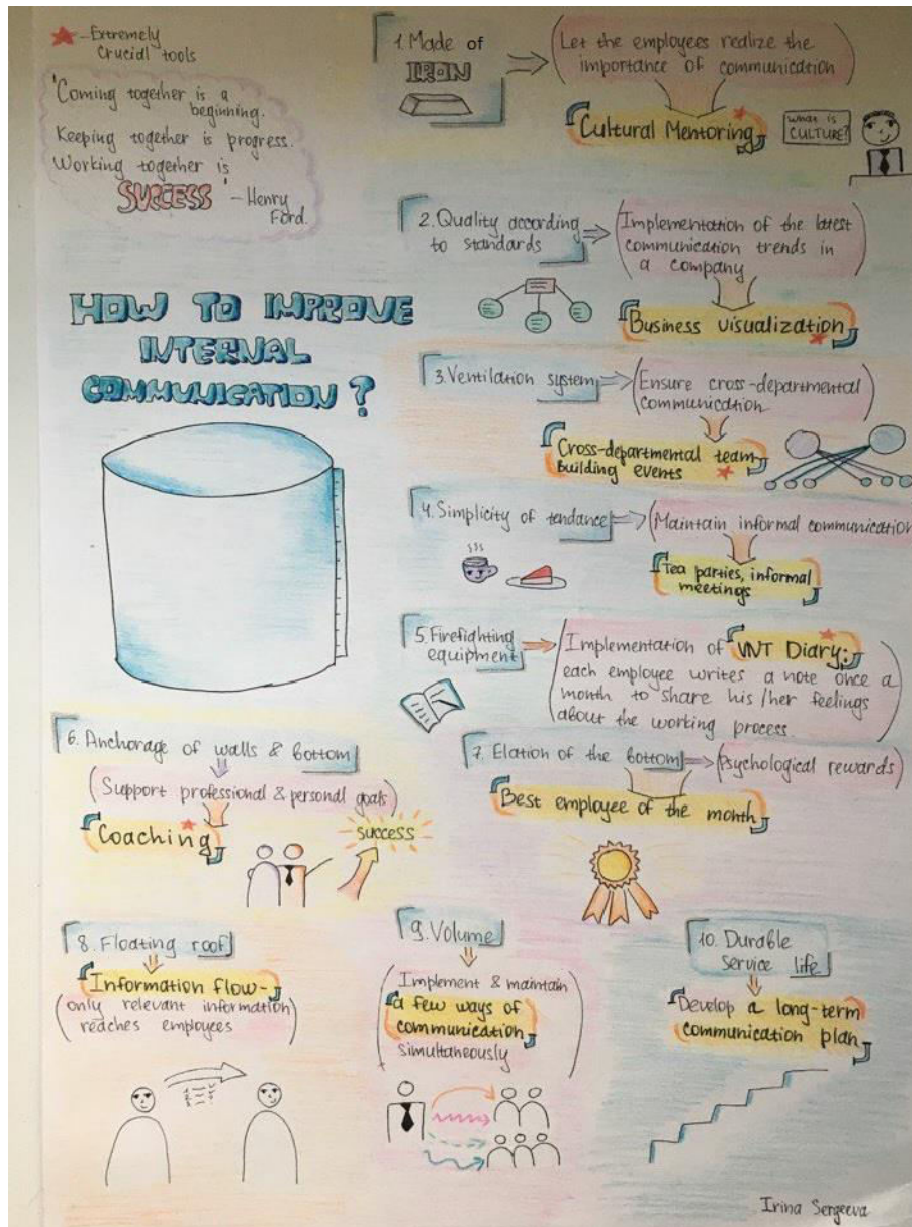 ★ - Extremely
Crucial tools
"Coming together is a
beginning.
Keeping together is progress.
Working together is
SUCCESS" - Henry
Ford.
HOW TO IMPROVE
INTERNAL
COMMUNICATION?
1. Made of
IRON
Let the employees realize the
importance of communication
Cultural Mentoring
What is
CULTURE?
2. Quality according
to standards
Implementation of the latest
communication trends in
a company
Business visualization
3. Ventilation system
Ensure cross-departmental
communication
Cross-departmental team-
building events
4. Simplicity of tendance
Maintain informal communication
Tea parties, informal
meetings
5. Firefighting
equipment
Implementation of VNT Diary:
each employee writes a note once a
month to share his/her feelings
about the working process
6. Anchorage of walls & bottom
Support professional & personal goals
Coaching
SUCCESS
7. Elation of the bottom
Psychological rewards
Best employee of the month
8. Floating roof
Information flow-
only relevant information
reaches employees
9. Volume
Implement & maintain
a few ways of
communication
simultaneously
10. Durable
service life
Develop a long-term
communication plan
Irina Sergeeva